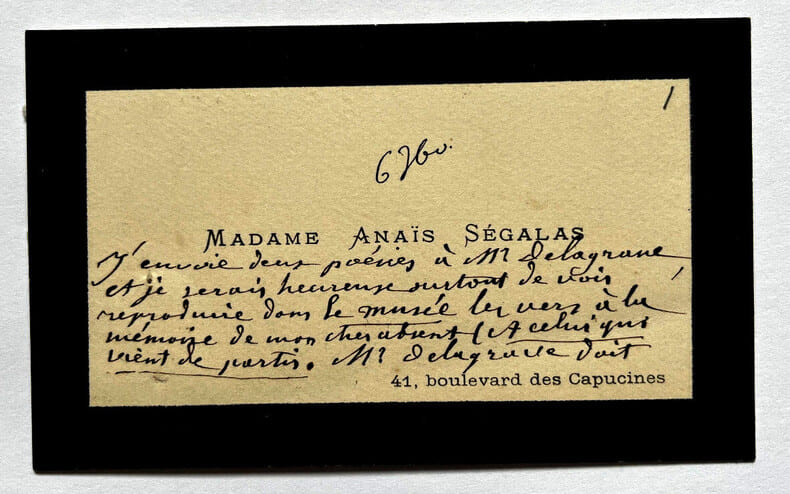 1
6 9bo.
MADAME ANAÏS SÉGALAS
J'envoie deux poésies à Mr Delagrave
et je serais heureuse surtout de voir
reproduire dans le musée les vers à la
mémoire de mon cher absent (A celui qui
vient de partir. Mr Delagrave doit
41, boulevard des Capucines